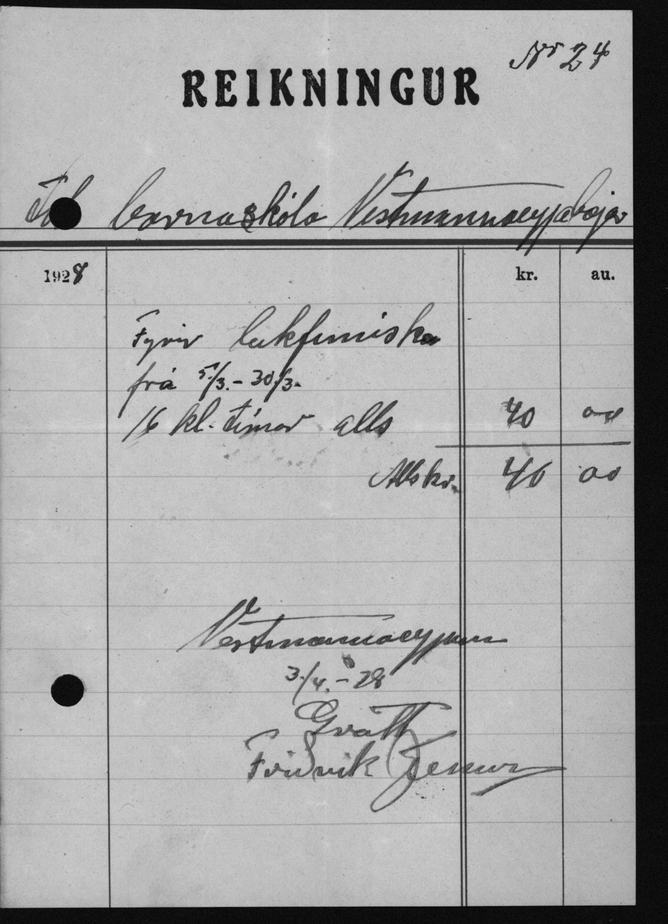 Nr 24
REIKNINGUR
Til barnaskóla Vestmannaeyjabæjar
1928 kr. au.
Fyrir leikfimiska
frá 5/3. – 30/3.
16 kl. tímar alls 40 00
Alls kr. 40 00
Vestmannaeyjum
3/4. – 28
Friðrik Jesson